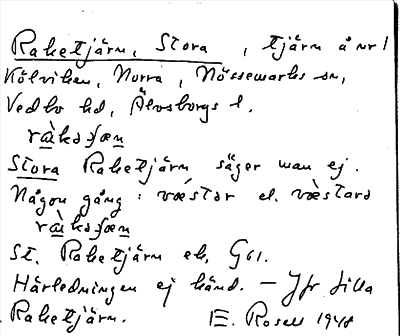 Raketjärn, Stora, tjärn å nr 1
Kölviken, Norra, Nössemarks sn,
Vedbo hd, Älvsborgs l.
Stora Raketjärn säger man ej.
Någon gång: væ̀stər el. væ̀stərə
St. Raketjärn ek. G61.
Härledningen ej känd. – Jfr Lilla
Raketjärn. E. Rosell 1941